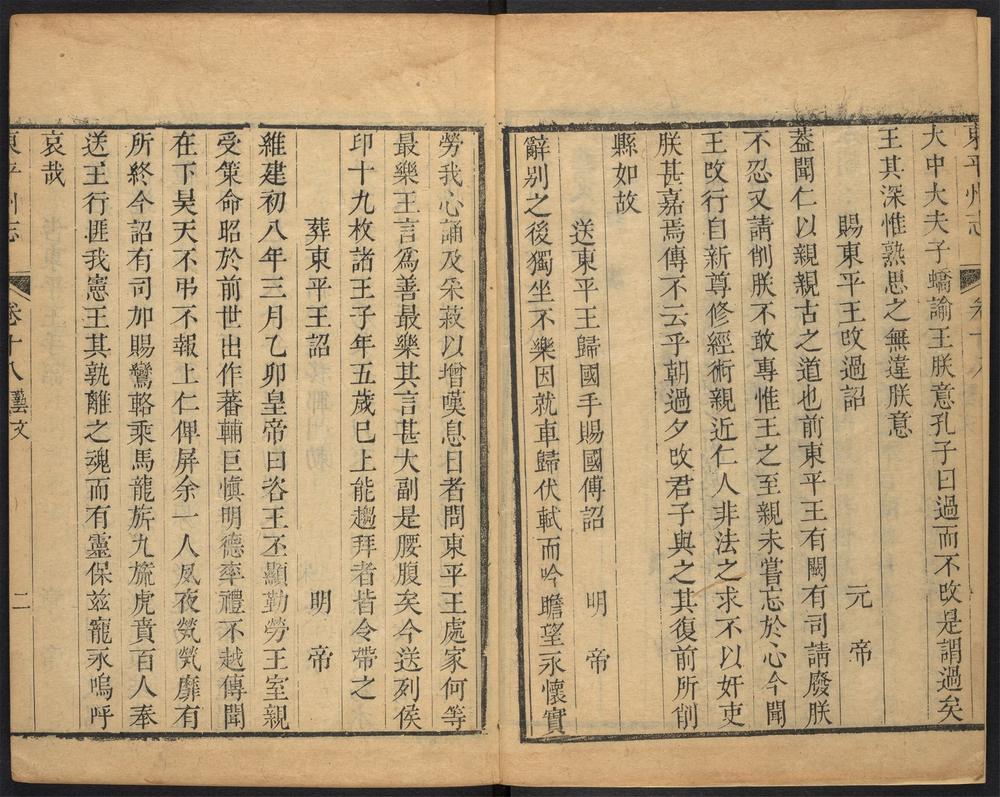 東平州志 卷十八
大中大夫子蟜諭王朕意孔子曰過而不攺是謂過矣
王其深惟熟思之無違朕意
賜東平王攺過詔 元帝
葢聞仁以親親古之道也前東平王有闕有司請廢朕
不忍又請削朕不敢專惟王之至親未嘗忘於心今聞
王攺行自新尊修經術親近仁人非法之求不以奸吏
朕甚嘉焉傳不云乎朝過夕攺君子與之其復前所削
縣如故
送東平王歸國手賜國傅詔 明帝
辭别之後獨坐不樂因就車歸伏軾而吟瞻望永懷實
勞我心誦及采菽以增嘆息日者問東平王處家何等
最樂王言為善最樂其言甚大副是腰腹矣今送列侯
印十九枚諸王子年五歲已上能趨拜者皆令帶之
葬東平王詔 明帝
維建初八年三月乙卯皇帝曰咨王丕顯勤勞王室親
受策命昭於前世出作蕃輔巨慎明德率禮不越傳聞
在下昊天不弔不報上仁俾屏余一人夙夜煢煢靡有
所終今詔有司加賜鸞輅乘馬龍旂九旒虎賁百人奉
送王行匪我憲王其孰離之魂而有靈保茲寵永嗚呼
哀哉
東平州志 卷十八 藝文 二